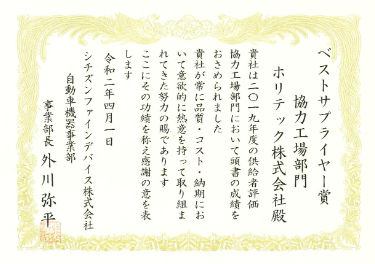 ベストサプライヤー賞
協力工場部門
ホリテック株式会社殿
貴社は二〇一九年度の供給者評価
協力工場部門において頭書の成績を
おさめられました
貴社が常に品質・コスト・納期にお
いて意欲的に熱意を持って取り組ま
れてきた努力の賜であります
ここにその功績を称え感謝の意を表
します
令和二年四月一日
シチズンファインデバイス株式会社
自動車機器事業部
事業部長 外川弥平